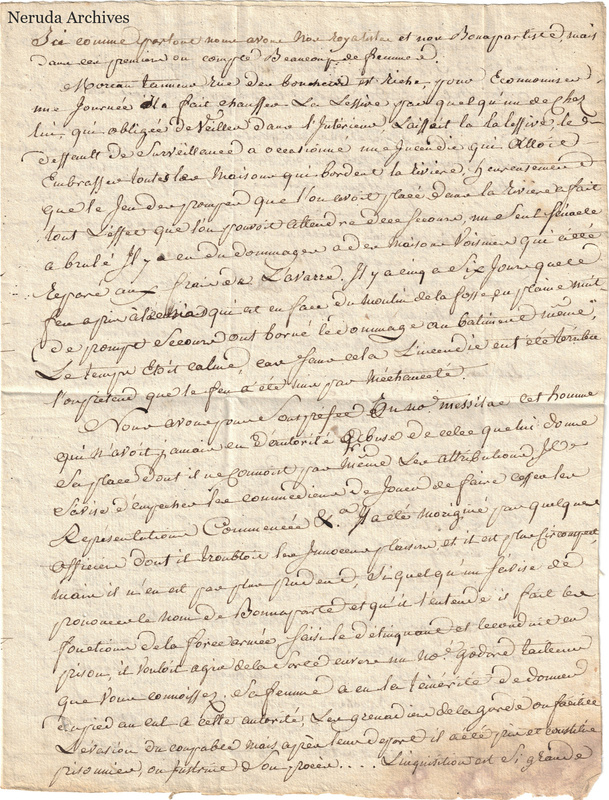 Neruda Archives
Ici comme partout nous avons nos royalistes et nos Bonapartistes, mais
dans ces premiers on compte Beaucoup de femmes.
Moreau tanneur rue des bouchers est riche, pour Economiser
une Journée il a fait chauffer La Lessive par quelqu'un de chez
lui, qui obligée de Veiller dans l'Intérieur Laissait la la lessive, le
deffault de Surveillance a occasionné une Incendie qui alloit
Embrasser toutes les maisons qui bordent la Riviere, heureusement
que le Jeu des pompes que l'on avoit placé dans la Riviere a fait
tout L'effet que l'on pouvoit attendre de ce Secours, un Seul
a brulé Il y a eu du dommage a des maisons Voisines qui a été
Reparé aux frais de Il y a cinq a Six Jours que le
feu a pris a qui est en face du moulin de la fosse en plaine nuit
de prompts Secours ont borné le dommage au batiment même,
Le temps Etoit calme, car sans cela L'incendie eut été terrible
L'on pretend que le feu a été mis par méchanceté.
Nous avons pour Souspréfet Un no.é cet homme
qui n'avoit jamais eu d'autorité abuse de celle que lui donne
Sa place dont il ne Connoit pas même Les attributions Il
S'avise d'empecher les commédiens de Jouer de faire cesser les
Representations Commencées &.a Il a été morigéné par quelques
officiers dont il troubloit les Innocens plaisirs et il est plus circonspect,
mais il n'en est pas plus prudent, Si quelqu'un S'avise de
prononcer le nom de Bonnaparte et qu'il l'entende il fait les
fonctions de la force armée, saisi le délinquant et le conduit en
prison, il vouloit agir de la Sorte envers un no.é tailleur
que Vous connoissez, Sa femme a eu la témérité de donner
du pied au cul a cette autorité, Les grenadiers de la garde ont facilité
L'evasion du coupable mais après leur depart il a été pris et constitué
prisonnier, on instruit Son procès.... L'inquisition est Si grande